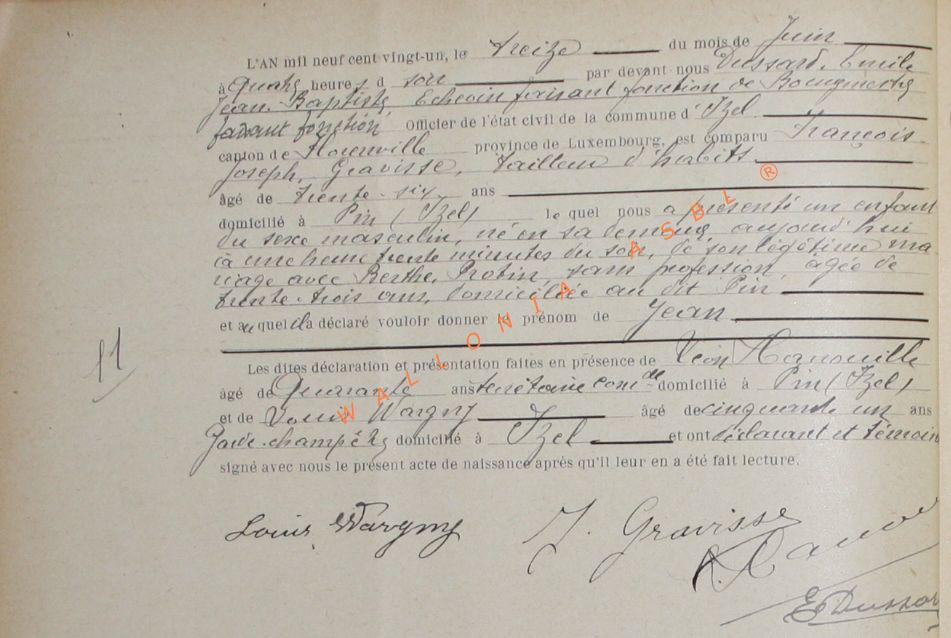 L'AN mil neuf cent vingt-un, le treize du mois de Juin
à Quatre heures d soir par devant nous Dussard, Emile
Jean-Baptiste, Echevin faisant fonction de Bourgmestre
faisant fonction Officier de l'état civil de la commune d'Izel
canton de Florenville province de Luxembourg, est comparu François
Joseph, Gravisse, tailleur d'habits
âgé de trente-six ans
domicilié à Pin (Izel) le quel nous a présenté un enfant
du sexe masculin, né en sa demeure aujourd'hui
à une heure trente minutes du soir, de son légitime ma
riage avec Berthe, Protin, sans profession, âgée de
trente-trois ans, domiciliée au dit Pin
et auquel il a déclaré vouloir donner le prénom de Jean
11
Les dites déclaration et présentation faites en présence de Léon Hanouille
âgé de Quarante ans secrétaire comal domicilié à Pin (Izel)
et de Louis Wargny âgé de cinquante un ans
Garde-champêtre domicilié à Izel et ont déclarant et témoin
signé avec nous le présent acte de naissance après qu'il leur en a été fait lecture.
Louis Wargny J. Gravisse
E Dussar
WALLONIA ASBL ®